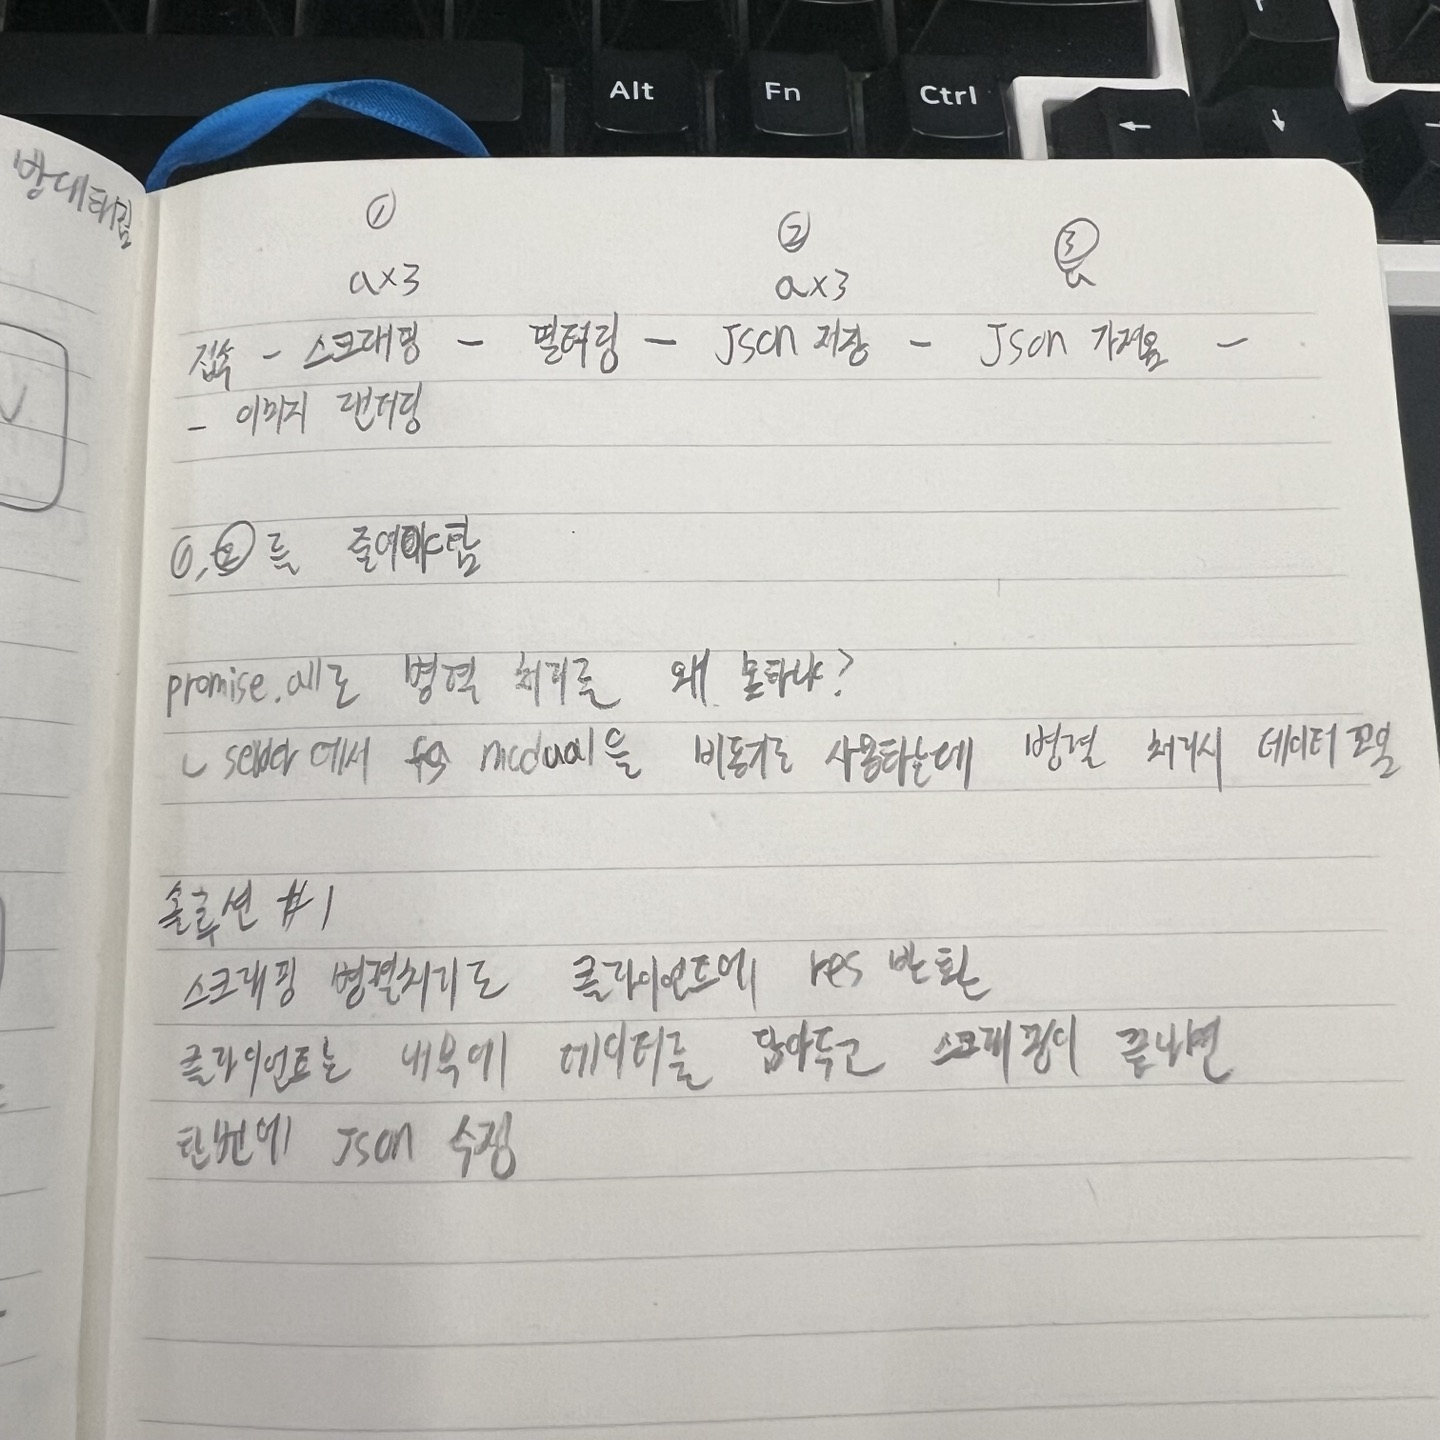 Alt Fn Ctrl
① ② ③
a×3 a×3 a
접속 - 스크래핑 - 필터링 - Json 저장 - Json 가져옴 -
- 이미지 랜더링
①,②를 줄여야함
promise.all로 병렬 처리를 왜 못하냐?
ㄴ 에서 fs 을 비동기로 사용하는데 병렬 처리시 데이터 꼬일
솔루션 #1
스크래핑 병렬처리로 클라이언트에 res 반환
클라이언트는 내부에 데이터를 담아두고 스크래핑이 끝나면
한번에 Json 수정